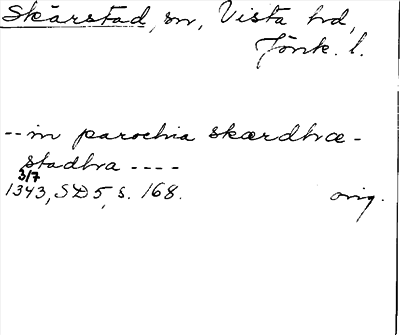 Skärstad, sn, Vista hd,
Jönk. l.
-- in parochia skærdhræ-
stadhra ----
3/7
1343, SD 5, s. 168. orig.